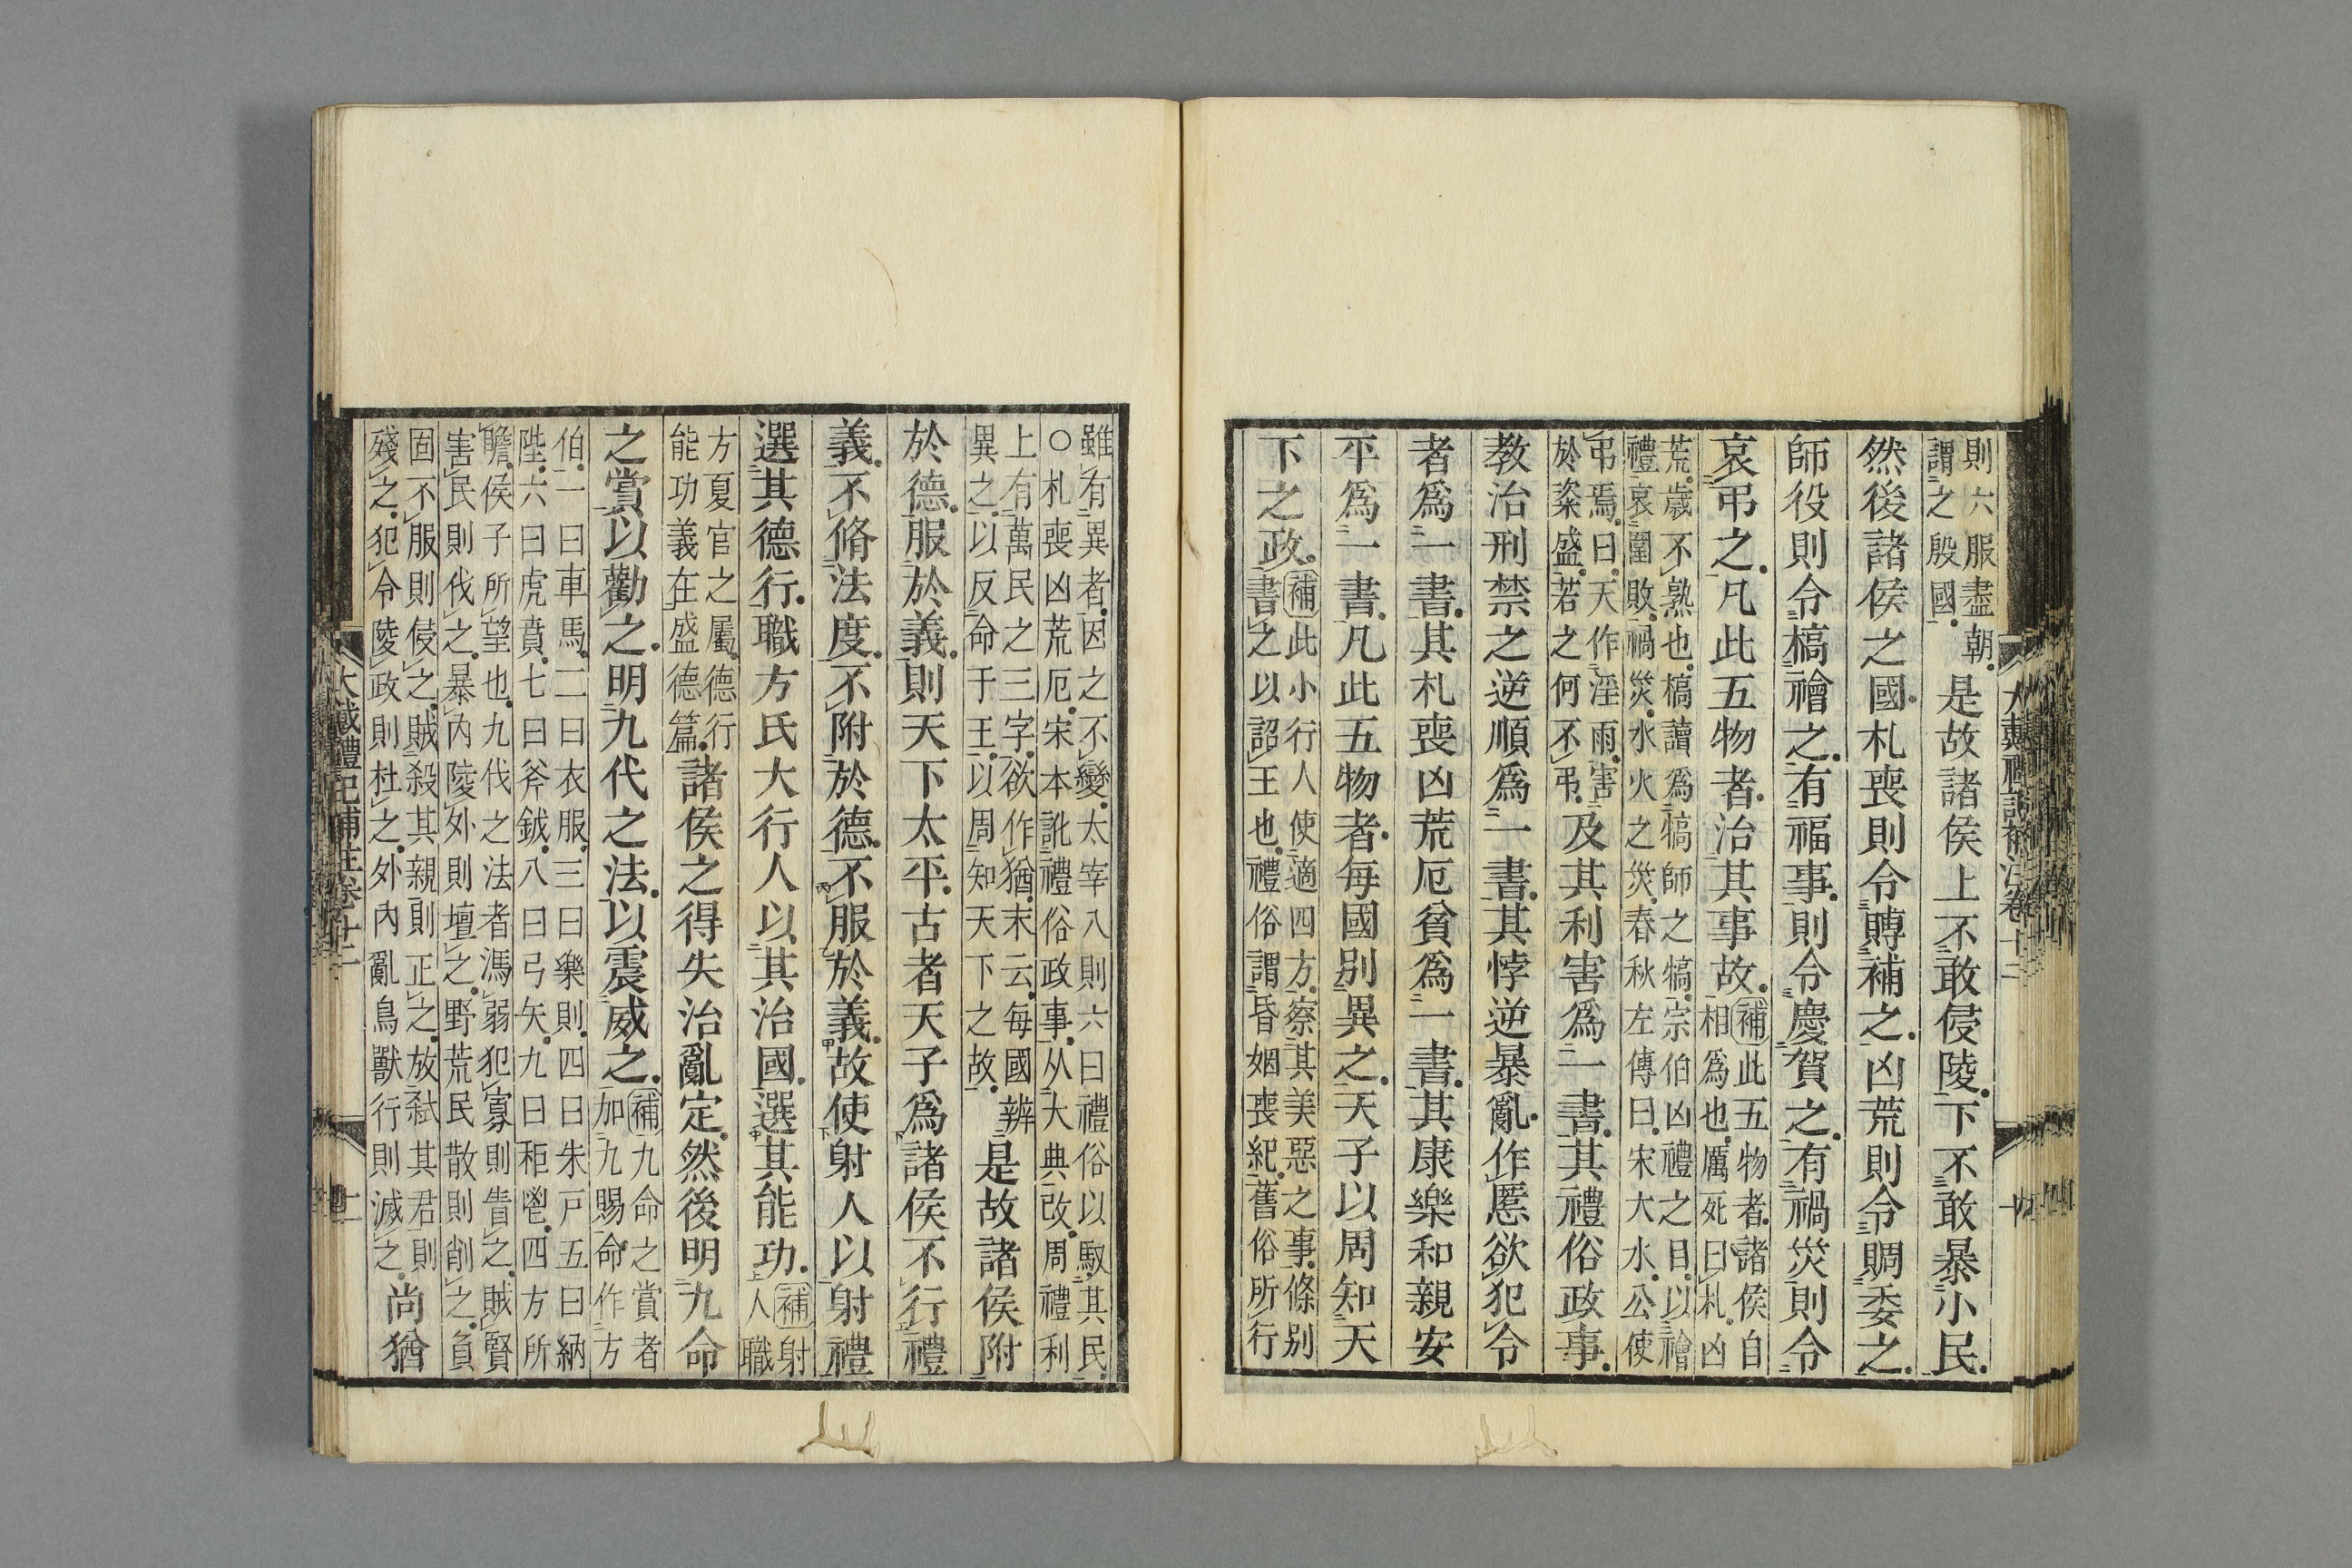 大戴禮記補注卷十二 十四
則六服盡朝謂之殷國是故諸侯上不敢侵陵下不敢暴小民
然後諸侯之國札喪則令賻補之凶荒則令賙委之
師役則令槁禬之有福事則令慶賀之有禍災則令
哀弔之凡此五物者治其事故補此五物者諸侯自相爲也厲死曰札凶
荒歳不熟也槁讀爲犒師之犒宗伯凶禮之目以禬
禮哀圍敗禍災水火之災春秋左傳曰宋大水公使
弔焉曰天作淫雨害於粢盛若之何不弔及其利害爲一書其禮俗政事
教治刑禁之逆順爲一書其悖逆暴亂作慝欲犯令
者爲一書其札喪凶荒厄貧爲一書其康樂和親安
平爲一書凡此五物者每國別異之天子以周知天
下之政補此小行人使適四方察其美惡之事條別書之以詔王也禮俗謂昏姻喪紀舊俗所行
雖有異者因之不變太宰八則六曰禮俗以馭其民
○札喪凶荒厄宋本訛禮俗政事从大典改周禮利
上有萬民之三字欲作猶末云每國辨異之以反命于王以周知天下之故是故諸侯附
於德服於義則天下太平古者天子爲諸侯不行禮
義不脩法度不附於德不服於義故使射人以射禮
選其德行職方氏大行人以其治國選其能功補射人職
方夏官之屬德行能功義在盛德篇諸侯之得失治亂定然後明九命
之賞以勸之明九代之法以震威之補九命之賞者加九賜命作方
伯一曰車馬二曰衣服三曰樂則四曰朱戸五曰納
陛六曰虎賁七曰斧鉞八曰弓矢九曰秬鬯四方所
瞻侯子所望也九伐之法者馮弱犯寡則眚之賊賢
害民則伐之暴內陵外則壇之野荒民散則削之負
固不服則侵之賊殺其親則正之放弑其君則
殘之犯令陵政則杜之外內亂鳥獸行則滅之尚猶
大戴禮記補注卷十二